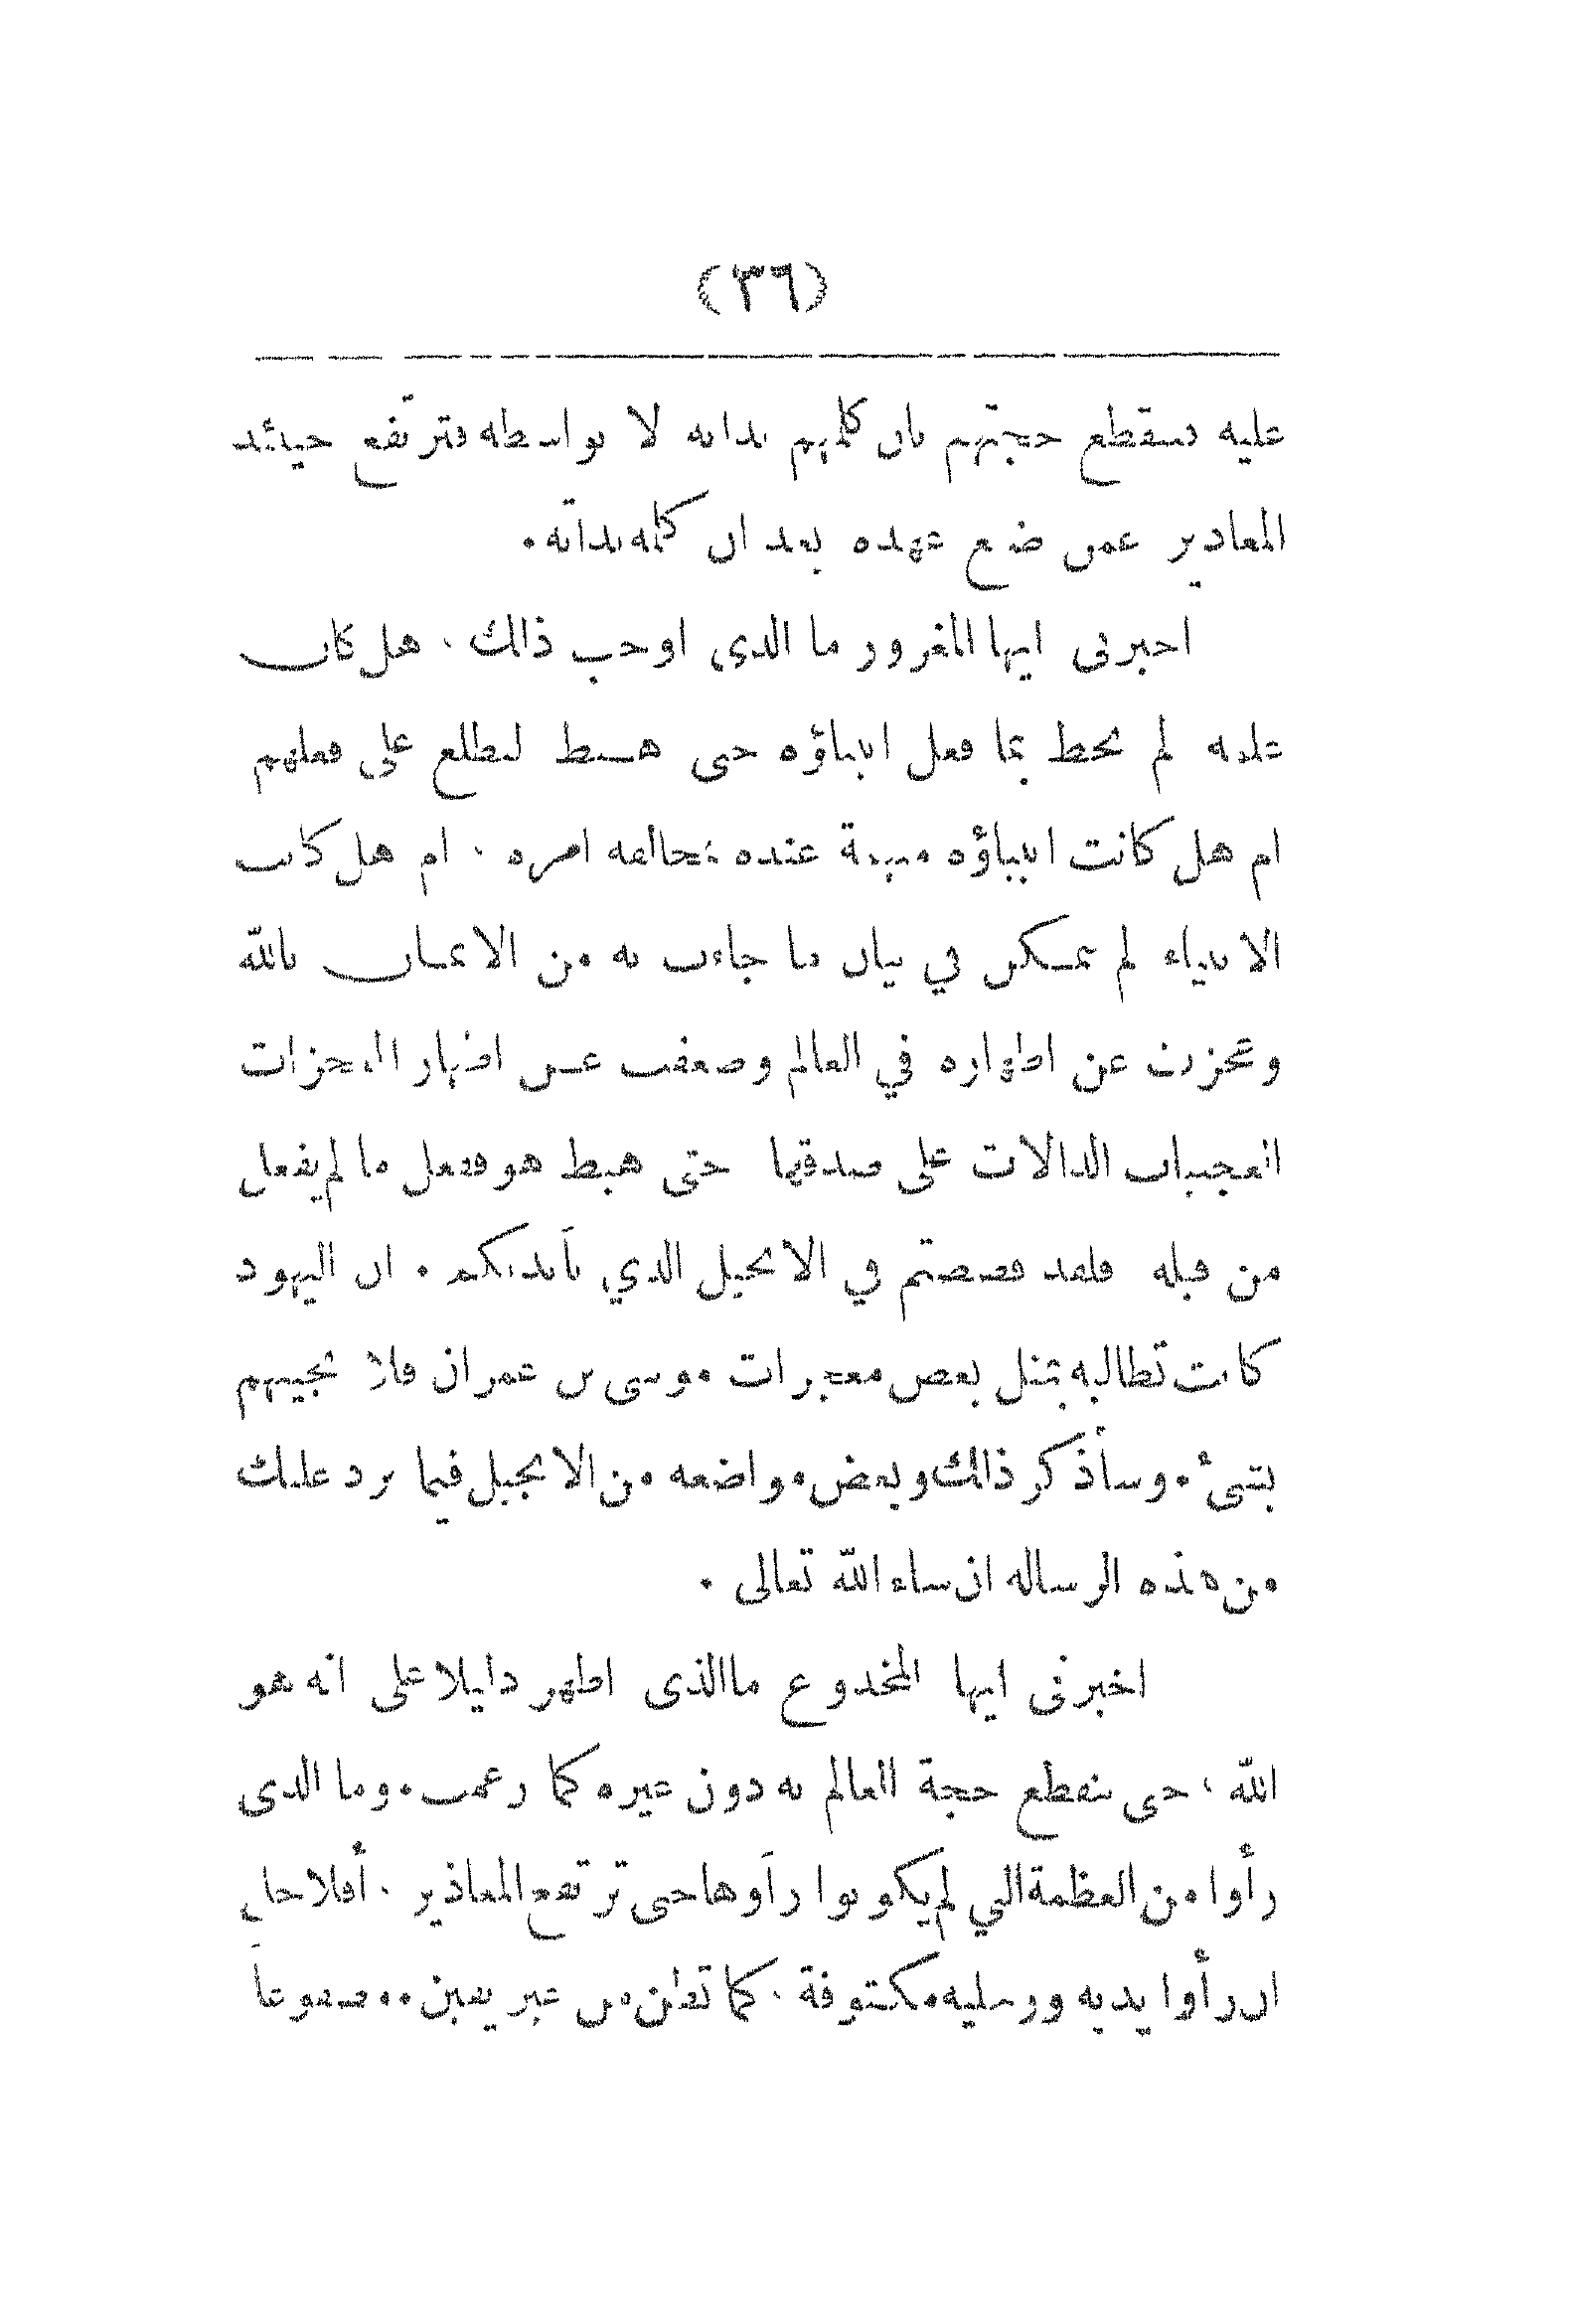 (٣٦)
عليه فسقطع حجتهم بان كلمهم بذاته لا بواسطة فترتفع حينئذ
المعاذير عمن ضيع عهده بعد ان كلمه بذاته.
اخبرني ايها المغرور ما الذي اوجب ذلك. هل كان
علمه لم يحط بما فعل انبياؤه حتى هبط ليطلع على فعلهم
ام هل كانت انبياؤه متهمة عنده بمخالفة امره. ام هل كانت
الانبياء لم تتمكن في بيان ما جاءت به من الايمان بالله
وعجزت عن اظهاره في العالم وضعفت عن اظهار المعجزات
العجيبات الدالات على صدقها حتى هبط هو ففعل ما لم يفعل
من قبله فلقد قصصتم في الانجيل الذي بأيديكم. ان اليهود
كانت تطالبه بمثل بعض معجزات موسى بن عمران فلا يجيبهم
بشيء. وسأذكر ذلك وبعض مواضعه من الانجيل فيما يرد عليك
من هذه الرسالة ان شاء الله تعالى.
اخبرني ايها المخدوع ما الذي اظهر دليلا على انه هو
الله، حتى تنقطع حجة العالم به دون غيره كما زعمت. وما الذي
رأوا من العظمة التي لم يكونوا رأوها حتى ترتفع المعاذير. أفلا جل
ان رأوا يديه ورجليه مكتوفة. كما تظن من غير يقين. مصفوعاً